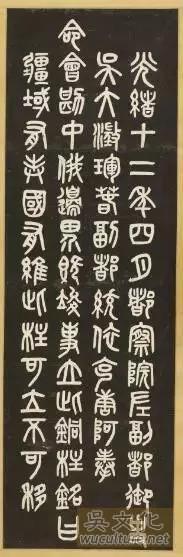 光緒十二年四月都察院左副都御史
吳大澂琿春副都統依克唐阿奉
命會勘中俄邊界既竣事立此銅柱銘曰
疆域有表國有維此柱可立不可移
吳文化
www.wuculture.net